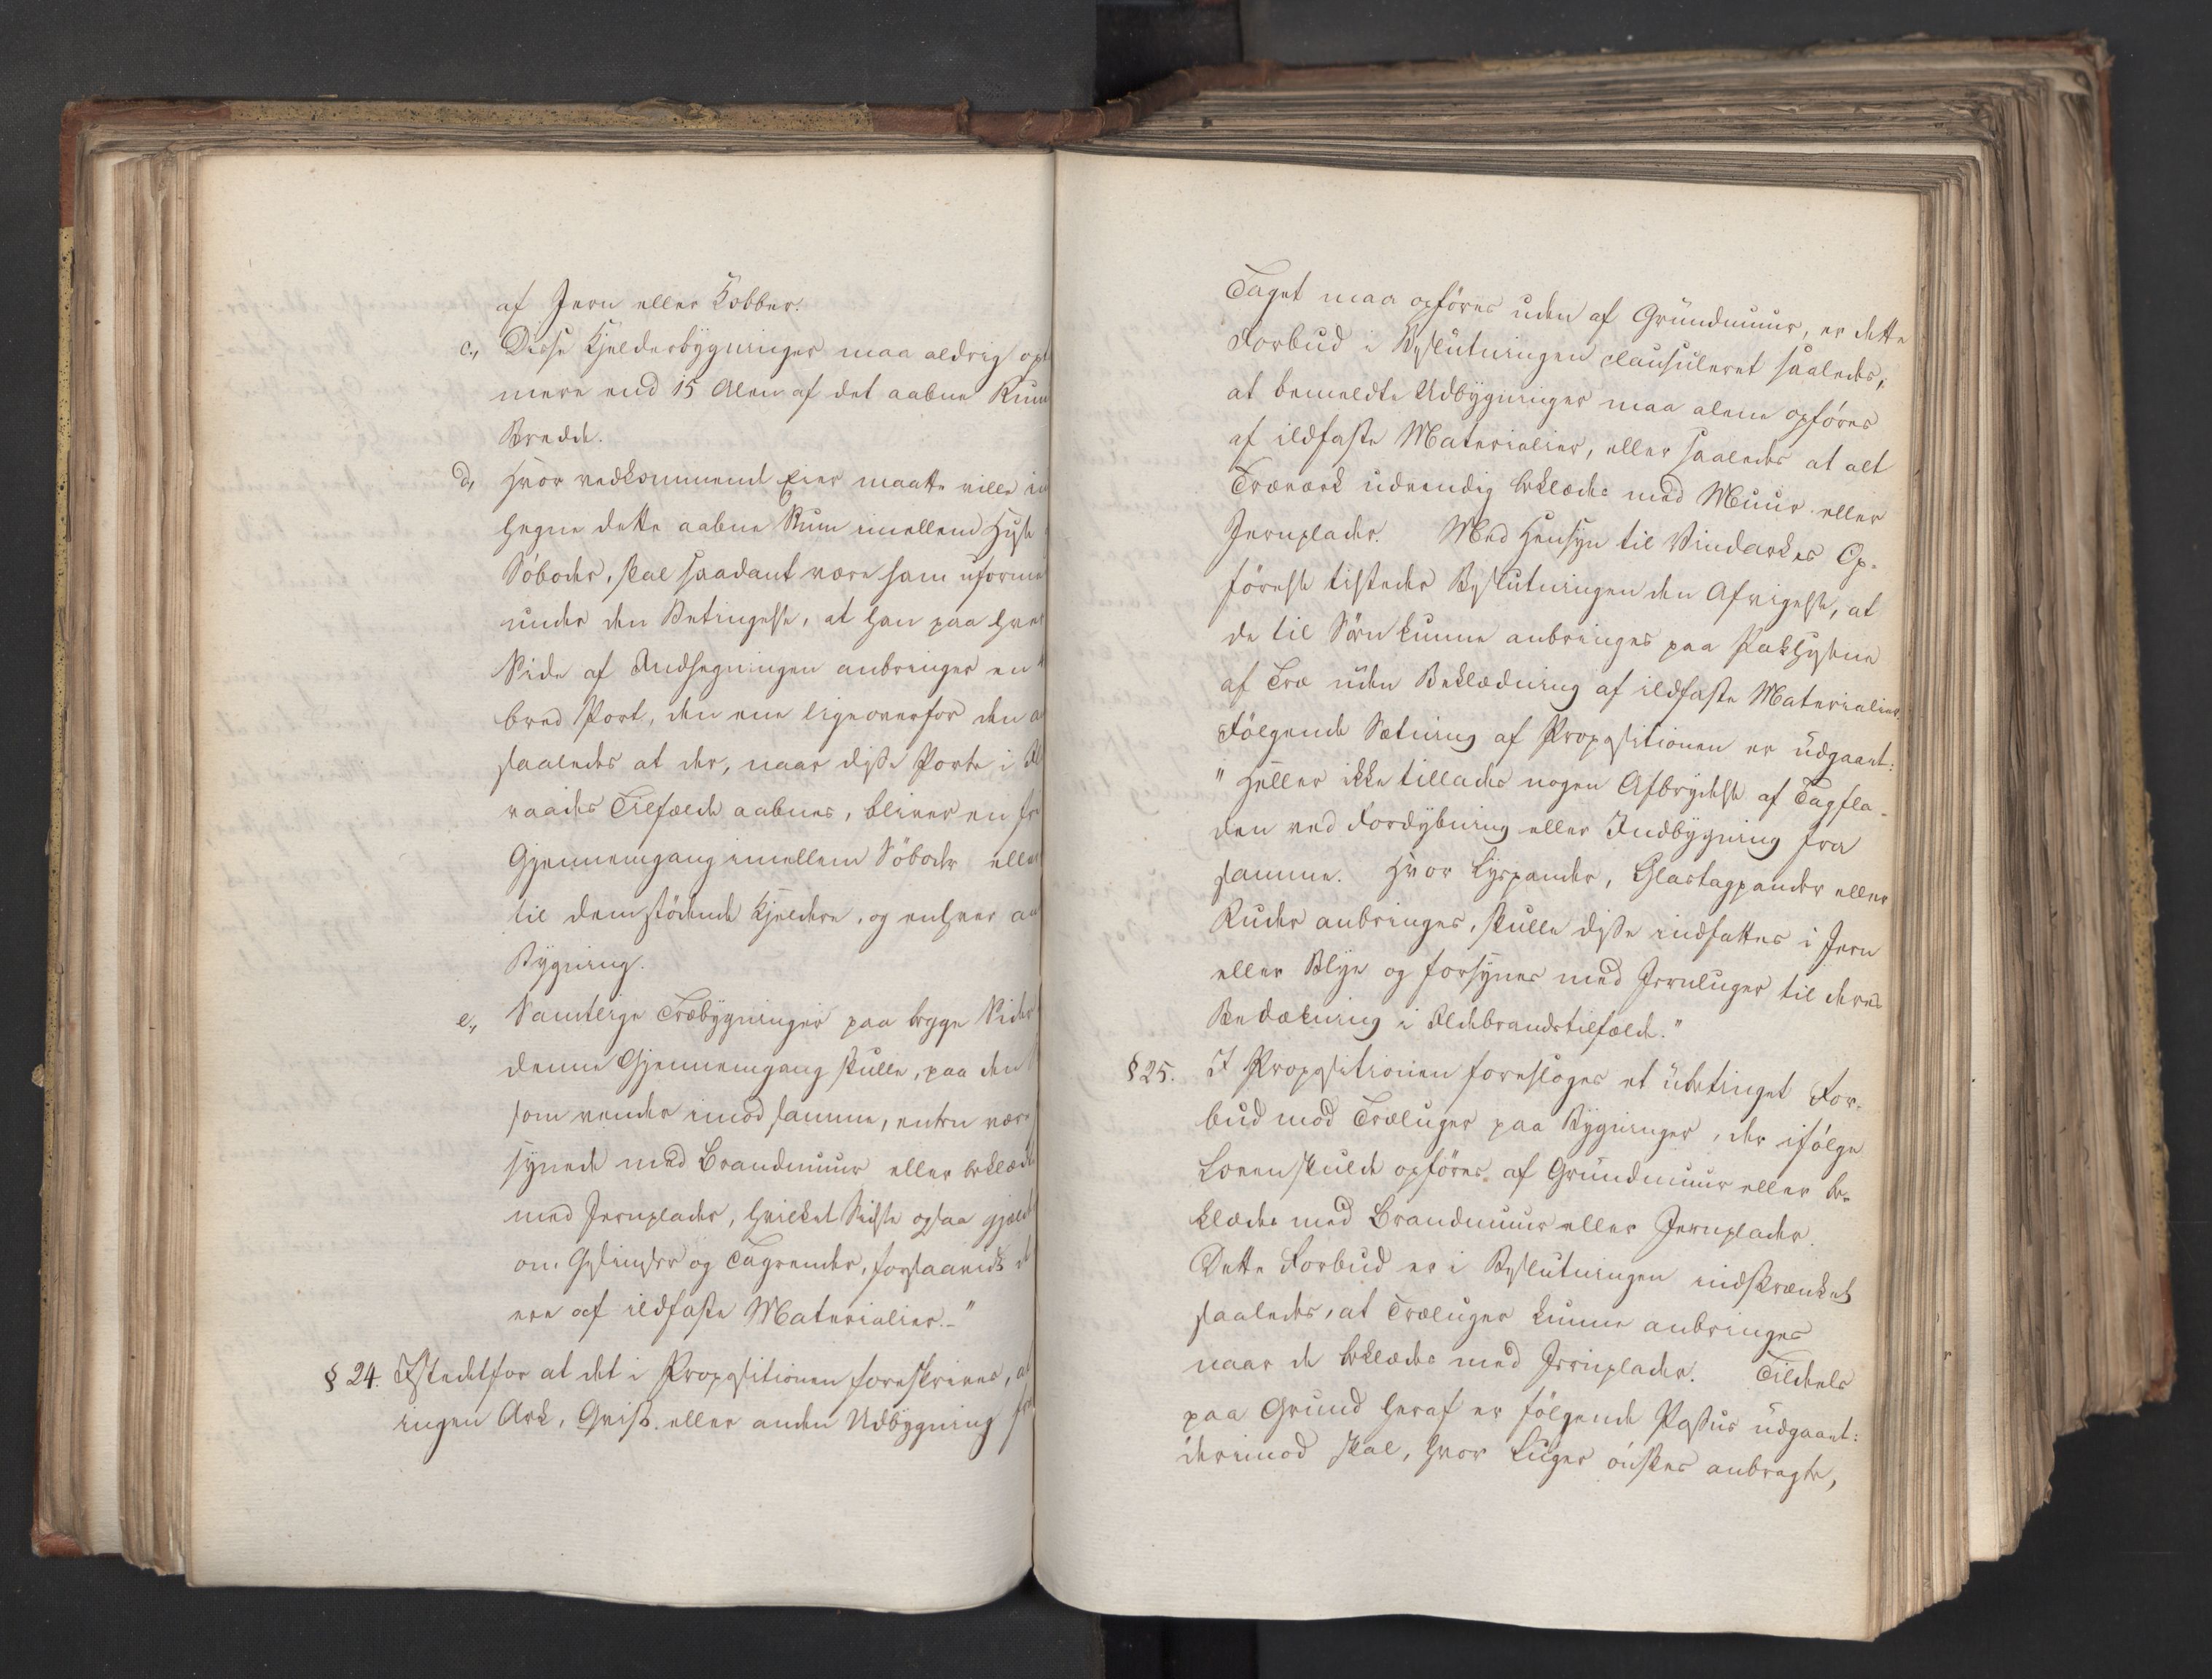 af Jern eller Kobber.
c., Disse Kjelderbygninger maa aldrig opt
mere end 15 Alen af det aabne Rum
Bredde.
d, Hvor vedkommende Eier maatte ville in
hegne dette aabne Rum imellem Huse
Söboder, skal saadant være ham uforme
under den Betingelse, at han paa hver
Side af Indhegningen anbringer en
bred Port, den ene ligeoverfor den a
saaledes at der, naar disse Porte i Il
vaades Tilfælde aabnes, bliver en fr
Gjennemgang imellem Söboder eller
til dem stödende Kjeldere, og enhver an
Bygning.
e., Samtlige Træbygninger paa begge Sider
denne Gjennemgang skulle, paa den
som vender imod samme, enten være
synede med Brandmuur eller beklædte
med Jernplader, hvilket Sidste ogsaa gjæld
om Gesimser og Tagrender, forsaavidt d
ere af ildfaste Materialier."
§ 24. Istedetfor at det i Propositionen foreskrives, at
ingen Ark, Qvist eller anden Udbygning fra
Taget maa opföres uden af Grundmuur, er dette
Forbud i Beslutningen clausuleret saaledes,
at bemeldte Udbygninger maa alene opföres
af ildfaste Materialier, eller saaledes at alt
Træværk udvendig beklædes med Muur eller
Jernplader. Med Hensyn til Vindarkes Op-
förelse tilsteder Beslutningen den Afvigelse, at
de til Söen kunne anbringes paa Pakhusene
af Træ uden Beklædning af ildfaste Materialier.
Fölgende Sætning af Propositionen er udgaaet:
"Heller ikke tillades nogen Afbrydelse af Tagfla-
den ved Fordybning eller Indbygning fra
samme. Hvor Lyspander, Glastagpander eller
Ruder anbringes, skulle disse indfattes i Jern
eller Blye og forsynes med Jernluger til deres
Bedækning i Ildebrandstilfælde."
§ 25. I Propositionen foresloges et ubetinget For-
bud mod Træluger paa Bygninger, der ifölge
Loven skulde opföres af Grundmuur eller be-
klædes med Brandmuur eller Jernplader.
Dette Forbud er i Beslutningen indskrænket
saaledes, at Træluger kunne anbringes
naar de beklædes med Jernplader. Tildeels
paa Grund heraf er fölgende Passus udgaaet:
derimod skal, hvor Luger önskes anbragte,